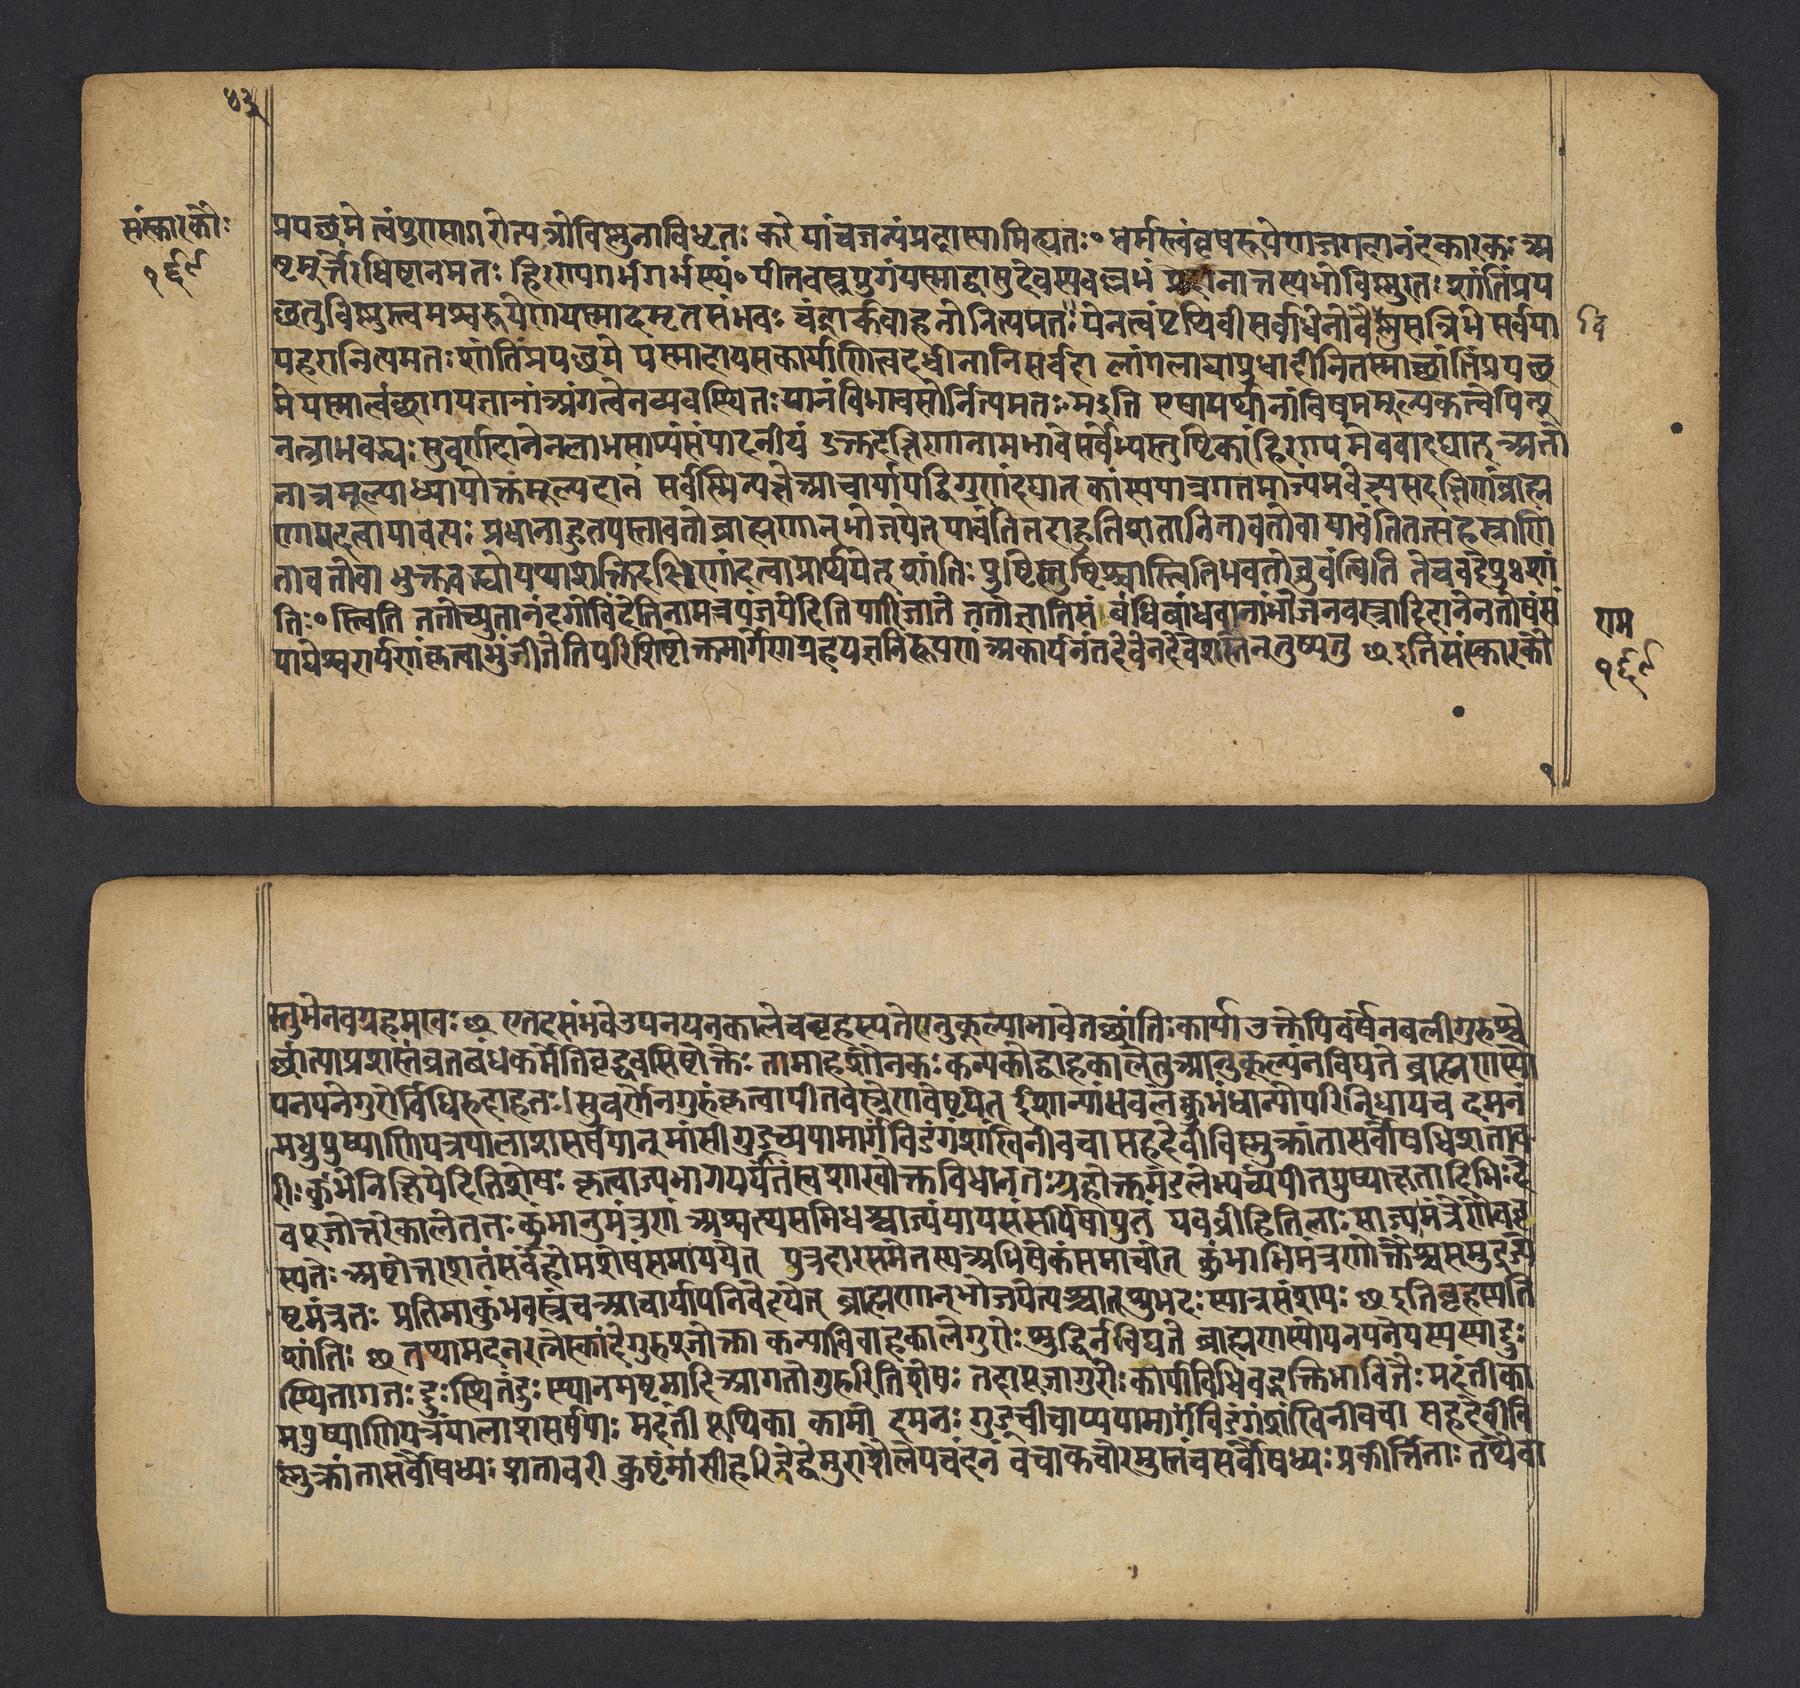 ४३
संस्कारकौः
१६९
प्रयच्छमे त्वंपुरासागरोत्पन्नोविष्णुनाविधृतः करे पांचजन्यंप्रदास्यामित्यतः॰ धर्मस्त्वंवृषरूपेणजगदानंदकारकः अ
ष्टमूर्त्तेरधिष्ठानमतः हिरण्यगर्भगर्भस्थं॰ पीतवस्त्रयुगंयस्माद्वासुदेवस्यवल्लभं प्रदानात्तस्यमेविष्णुरतः शांतिंप्रय
छतु विष्णुस्त्वमश्वरूपेणयस्मादमृतसंभवः चंद्रार्कवाहनोनित्यमतः येनत्वंपृथिवीसर्वाधेनोर्वैष्णुसन्निभे सर्वपा
वि
पहरानित्यमतः शांतिंप्रयच्छमे यस्मादायसकार्याणित्वदधीनानिसर्वदा लांगलाद्यायुधादीनितस्माच्छांतिंप्रयच्छ
मे यस्मात्वंछागयज्ञानांअंगत्वेनव्यवस्थितः यानंविभावसोर्नित्यमतः मइति एषांपदार्थानांविषममूल्यकत्वेपिन्यू
नत्नाभवद्भ्यः सुवर्णदानेनलाभसाम्यंसंपादनीयं उक्तदक्षिणानामभावेसर्वेभ्यस्तुष्टिकरंहिरण्यमेववादद्यात् अतो
नान्नमूल्याध्यायोक्तंमूल्यदानं सर्वस्मिन्पक्षेआचार्यायद्विगुणंदद्यात् कांस्यपात्रगतमाज्यमवेक्ष्यसदक्षिणंब्राह्म
णायदत्वायावत्यः प्रधानाहुतयस्तावतोब्राह्मणान्भोजयेत् यावंतितदाहुतिशतानितावतोवा यावंतितत्सहस्राणि
तावतोवा भुक्तवद्भ्योयथाशक्तिदक्षिणांदत्वाप्रार्थयेत् शांतिः पुष्टिस्तुष्टिश्चास्त्वितिभवंतोब्रुवंत्विति तेचवदेयुः शां
तिः॰स्त्विति ततोच्युतानंदगोविंदेतिनामत्रयंजपेदितिपारिजाते ततोज्ञातिसंबंधिबांधवानांभोजनवस्त्रादिदानेनतोषंसं
पाद्येश्वरार्पणंकृत्वाभुंजीतेतिपरिशिष्टोक्तमार्गेणग्रहयज्ञनिरूपणं अकार्यनंतदेवेनदेवेशस्तेनतुष्यतु छ इतिसंस्कारकौ
राम
१६९
स्तुभेनवग्रहमखः छ एतदसंभवेउपनयनकालेचबृहस्पतेरनुकूल्याभावेतच्छांतिः कार्या उक्तेपिवर्षेनबलीगुरुश्चे
छांत्याप्रशस्तंव्रतबंधकर्मेतिवृद्धवसिष्ठोक्तेः तामाहशौनकः कन्यकोद्वाहकालेतुआनुकूल्यंनविद्यते ब्राह्मणस्यो
पनयनेगुरोर्विधिरुदाहृतः। सुवर्णेनगुरुंकृत्वापीतवस्त्रेणवेष्टयेत् ईशान्यांधवलंकुंभंधान्योपरिनिधायच दमनं
मधुपुष्पाणिपत्रपालाशसर्षपान् मांसीगुडूच्यपामार्गविडंगंशंखिनीवचा सहदेवीविष्णुक्रांतासर्वौषधिशताव
रीः कुंभेनिक्षिपेदितिशेषः कृत्वाज्यभागपर्यंतंस्वशाखोक्तविधानतः ग्रहोक्तमंडलेभ्यर्च्यपीतपुष्पाक्षतादिभिः दे
वपूजोत्तरेकालेततः कुंभानुमंत्रणं अश्वत्थसमिधश्चाज्यंपायसंसर्पिषायुतं यवव्रीहितिलाः साज्यमंत्रेणैवबृह
स्पतेः अष्टोत्तरशतंसर्वंहोमशेषंसमापयेत् पुत्रदारसमेतस्यअभिषेकंसमाचरेत् कुंभाभिमंत्रणोक्तैश्चसमुद्रज्ये
ष्ठमंत्रतः प्रतिमाकुंभवस्त्रंचआचार्यायनिवेदयेत् ब्राह्मणान्भोजयेत्पश्चात्शुभदःस्यान्नसंशयः छ इतिबृहस्पति
शांतिः छ तथामदनरत्नेस्कांदेगुरुपूजोक्ता कन्याविवाहकालेगुरोः शुद्धिर्नविद्यते ब्राह्मणस्योपनयनेयस्यस्याद्दुः
स्थितागतः दुःस्थितंदुःस्थानमष्टमादिआगतोगुरुरितिशेषः तदापूजागुरोः कार्याविधिवद्भक्तिभावितैः मदंतीका
मपुष्पाणिपत्रंपालाशसर्षपाः मदंती यूथिका कामो दमनः गुडूचीचाप्यपामार्गविडंगंशंखिनीवचा सहदेवीवि
ष्णुक्रांतासर्वौषध्यः शतावरी कुष्टंमांसीहरिद्रेद्वेमुराशैलेयचंदनं वचाकचोरमुस्तंचसर्वौषध्यः प्रकीर्त्तिताः तथैवा